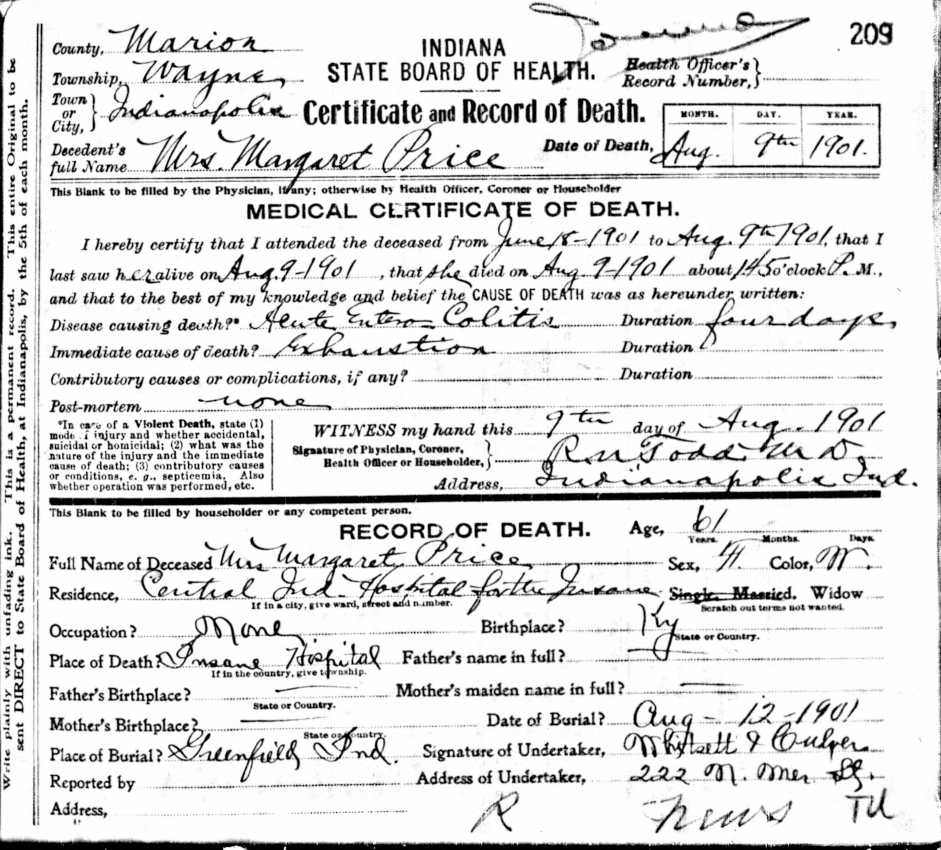 209
County, Marion
INDIANA
Township, Wayne
STATE BOARD OF HEALTH.
Health Officer's
Record Number,
Town or City, Indianapolis
Certificate and Record of Death.
MONTH. DAY. YEAR.
Decedent's full Name Mrs. Margaret Price
Date of Death, Aug. 9th 1901.
This Blank to be filled by the Physician, if any; otherwise by Health Officer, Coroner or Householder
MEDICAL CERTIFICATE OF DEATH.
I hereby certify that I attended the deceased from June 18-1901 to Aug. 9th 1901, that I
last saw her alive on Aug. 9-1901, that she died on Aug 9-1901 about 1 45 o'clock P. M.,
and that to the best of my knowledge and belief the CAUSE OF DEATH was as hereunder written:
Disease causing death?* Acute Entero Colitis Duration four days
Immediate cause of death? Exhaustion Duration
Contributory causes or complications, if any? Duration
Post-mortem none
*In case of a Violent Death, state (1)
mode of injury and whether accidental,
suicidal or homicidal; (2) what was the
nature of the injury and the immediate
cause of death; (3) contributory causes
or conditions, e. g., septicemia. Also
whether operation was performed, etc.
WITNESS my hand this 9th day of Aug. 1901
Signature of Physician, Coroner,
Health Officer or Householder, Todd M D.
Address, Indianapolis Ind.
This Blank to be filled by householder or any competent person.
RECORD OF DEATH.
Age, 61
Years. Months. Days.
Full Name of Deceased Mrs Margaret Price Sex, Color, W.
Residence, Central Ind. Hospital for the Insane Single. Married. Widow
If in a city, give ward, street and number. Scratch out terms not wanted.
Occupation? None Birthplace? Ky
State or Country.
Place of Death? Insane Hospital Father's name in full?
If in the country, give township.
Father's Birthplace? Mother's maiden name in full?
State or Country.
Mother's Birthplace? Date of Burial? Aug - 12 - 1901
State or Country.
Place of Burial? Greenfield Ind. Signature of Undertaker, Whitsett & Culver
Reported by Address of Undertaker, 222 N. Mer St.
Address,
R News TU
Write plainly with unfading ink. This is a permanent record. This entire Original to be
sent DIRECT to State Board of Health, at Indianapolis, by the 5th of each month.